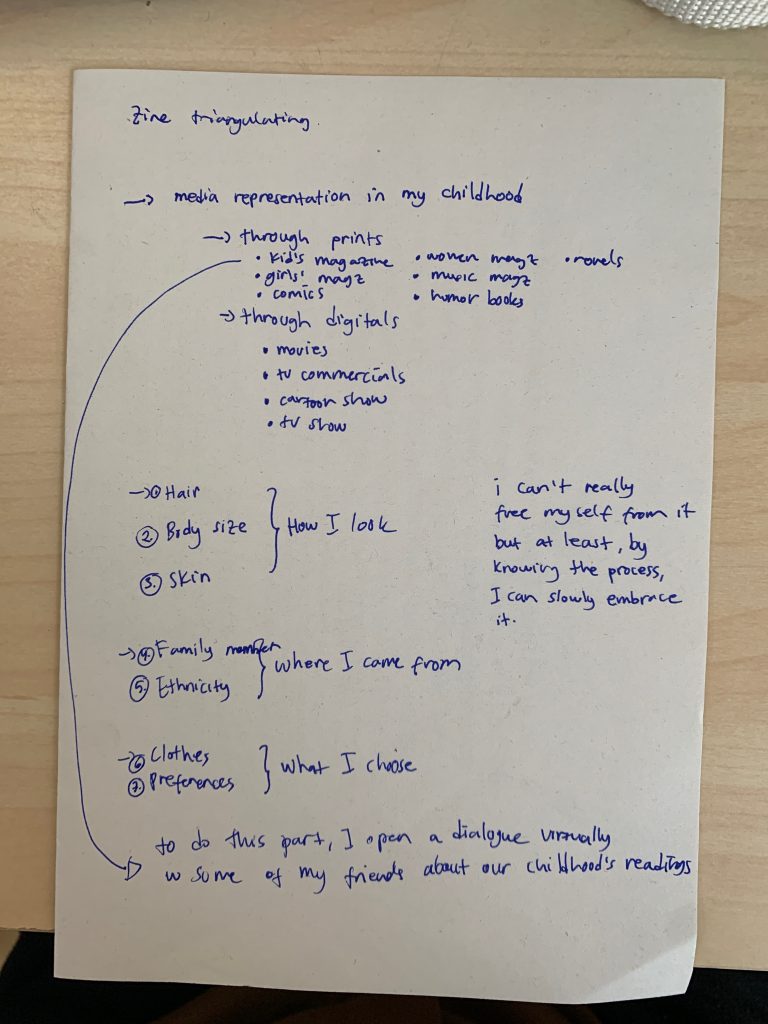 Zine triangulating.
→ media representation in my childhood
→ through prints
• kid's magazine • women magz • novels
• girls' magz • music magz
• comics • humor books
→ through digitals
• movies
• tv commercials
• cartoon show
• tv show
→ ① Hair
② Body size } How I look
③. Skin
i can't really
free my self from it
but at least, by
knowing the process,
I can slowly embrace
it.
→ ④. Family member } where I came from
⑤. Ethnicity
→ ⑥ Clothes } what I choose
⑦. Preferences
to do this part, I open a dialogue virtually
w some of my friends about our childhood's readings